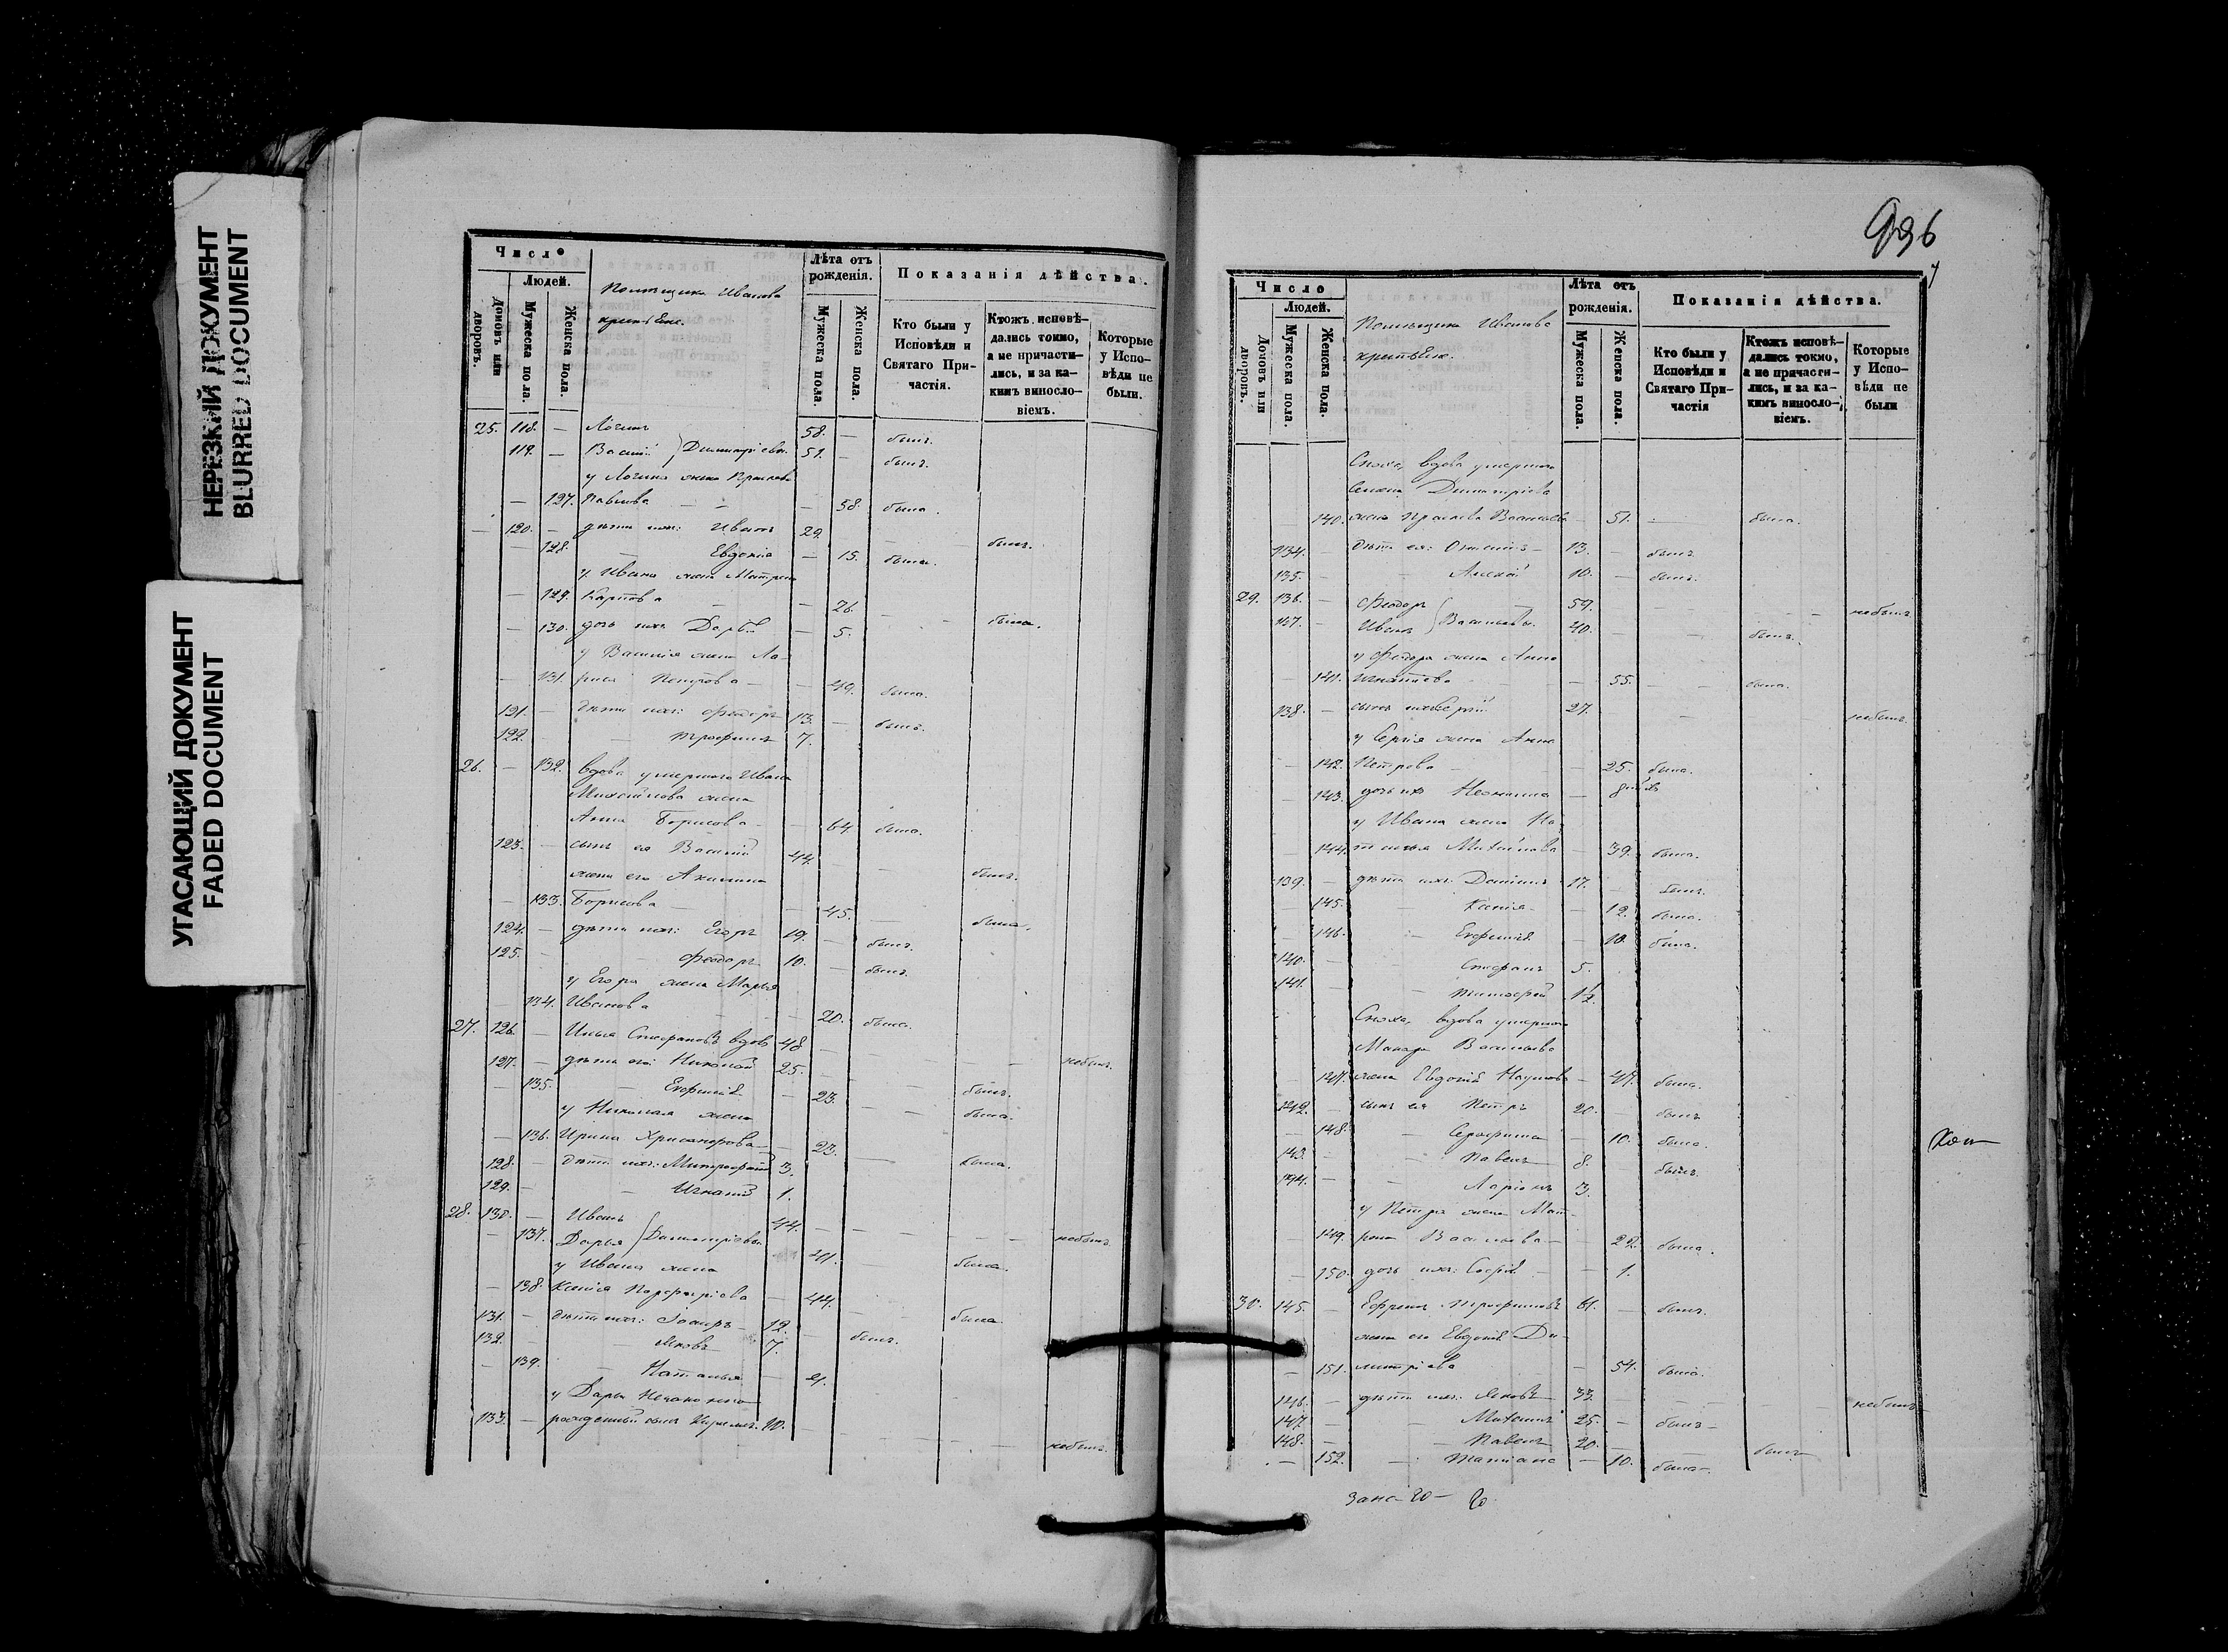 НЕРЕЗКИЙ ДОКУМЕНТ
BLURRED DOCUMENT
УГАСАЮЩИЙ ДОКУМЕНТ
FADED DOCUMENT
Число
Людей.
Домовъ или дворовъ.
Мужеска пола.
Женска пола.
Помѣщика Иванова
Лѣта отъ рожденія.
Мужеска пола.
Женска пола.
Показанія дѣйства.
Кто были у Исповѣди и Святаго Причастія.
Ктожъ исповѣдались токмо, а не причастились, и за какимъ винословіемъ.
Которые у Исповѣди не были.
25. 118. — Логинъ 58. — былъ.
119. — Василій } Димитріевы 51. — былъ.
у Логина жена Прасковья
— 127. Павлова — 58. была.
— 120. — дѣти ихъ: Иванъ 29. — — былъ.
— 128. — Евдокія — 15. была.
у Ивана жена Матрена
— 129. Карпова — — 26. — была.
— 130. дочь ихъ Дарья — 5.
у Василія жена Ла-
— 131. риса Петрова — — 49. была.
121. — дѣти ихъ: Феодоръ 13. — былъ.
122. — Трофимъ 7.
26. — 132. вдова умершаго Ивана
Михайлова жена
Анна Борисова — — 64. была.
123. — сынъ ея Василій 44. — — былъ.
жена его Акилина
— 133. Борисова — — 45. — была.
124. — дѣти ихъ: Егоръ 19. — былъ.
125. — Феодоръ 10. — былъ.
у Егора жена Марья
134. Иванова — — 20. была.
27. 126. — Илья Стефановъ вдовъ 48 — — — небылъ.
127. — дѣти его: Николай 25. — — былъ.
— 135. — Евфимія — 23. — была.
у Николая жена
— 136. Ирина Хрисанфова — 23. — была.
128. — дѣти ихъ: Митрофанъ 3.
129. — Игнатій 1.
28. 130. — Иванъ 44. — — — небылъ.
— 137. Дарья } Димитріевы — 41. — была.
у Ивана жена
— 138. Ксенія Порфиріева — 44. — была.
131. — дѣти ихъ: 12. — былъ.
132. — Яковъ 7.
— 139. — Наталья — 4.
у Дарьи незаконно
133. — рожденный сынъ 10. — — — небылъ.
936
7
Число
Людей.
Домовъ или дворовъ.
Мужеска пола.
Женска пола.
Помѣщика Иванова
Лѣта отъ рожденія.
Мужеска пола.
Женска пола.
Показанія дѣйства.
Кто были у Исповѣди и Святаго Причастія
Ктожъ исповѣдались токмо, а не причастились, и за какимъ винословіемъ.
Которые у Исповѣди не были
Сноха, вдова умершаго
Семена Димитріева
140. жена Прасковья Васильева — 51. — была.
134. — дѣти ея: 13. — былъ.
135. — Алексѣй 10. — былъ.
29. 136. — Феодоръ 59. — — — небылъ
137. — Иванъ } Васильевы 40. — — былъ.
у Феодора жена Анна
— 141. Игнатіева — — 55. — была.
138. — сынъ ихъ Сергій 27. — — небылъ.
у Сергія жена Анна
— 142. Петрова — — 25. была.
— 143. дочь ихъ Неонилла —
у Ивана жена На-
— 144. талья Михайлова — 39. была.
139. — дѣти ихъ: 17. — былъ.
145. — Ксенія — 12. была.
— 146. — Евфимія — 10. была.
140. — Стефанъ 5.
141. — Тимофей 1½.
Сноха, вдова умершаго
Макара Васильева
— 147. жена Евдокія Наумова — 47. была.
142. — сынъ ея Петръ 20. — былъ
148. — Серафима — 10. была.
143. — Павелъ 8. — былъ.
144. — Ларіонъ 3.
у Петра жена Мат-
— 149. рена Васильева — 22. была.
— 150. дочь ихъ: Софія — 1.
30. 145. — Ефремъ Трофимовъ 61. — былъ.
жена его Евдокія Ди-
— 151. митріева — 54. была.
146. — дѣти ихъ: Яковъ 33. — — — небылъ
147. — Михаилъ 25. — былъ —
148. — Павелъ 20. — — былъ
— 152. — Татіана — 10. была —